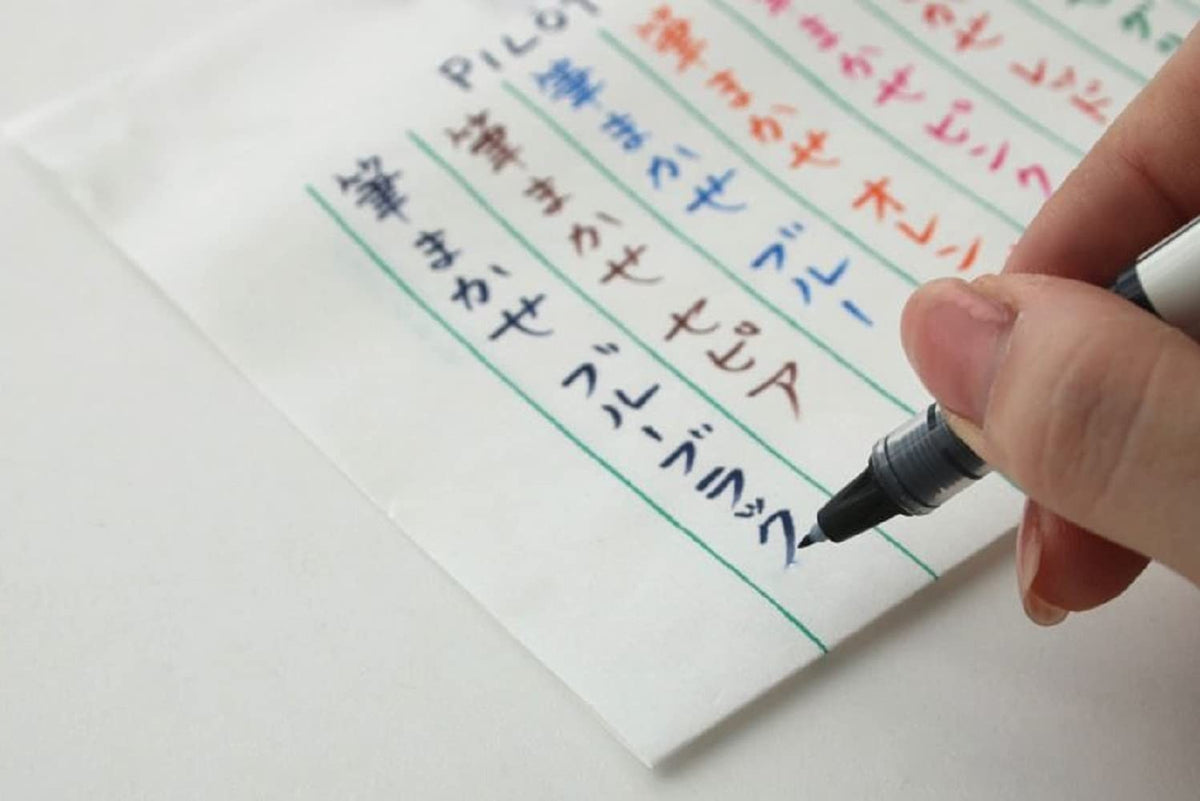 PILOT
かせ レッド
まかせ ピンク
筆まかせ オレン
筆まかせ ブルー
筆まかせ セピア
筆まかせ ブルーブラック